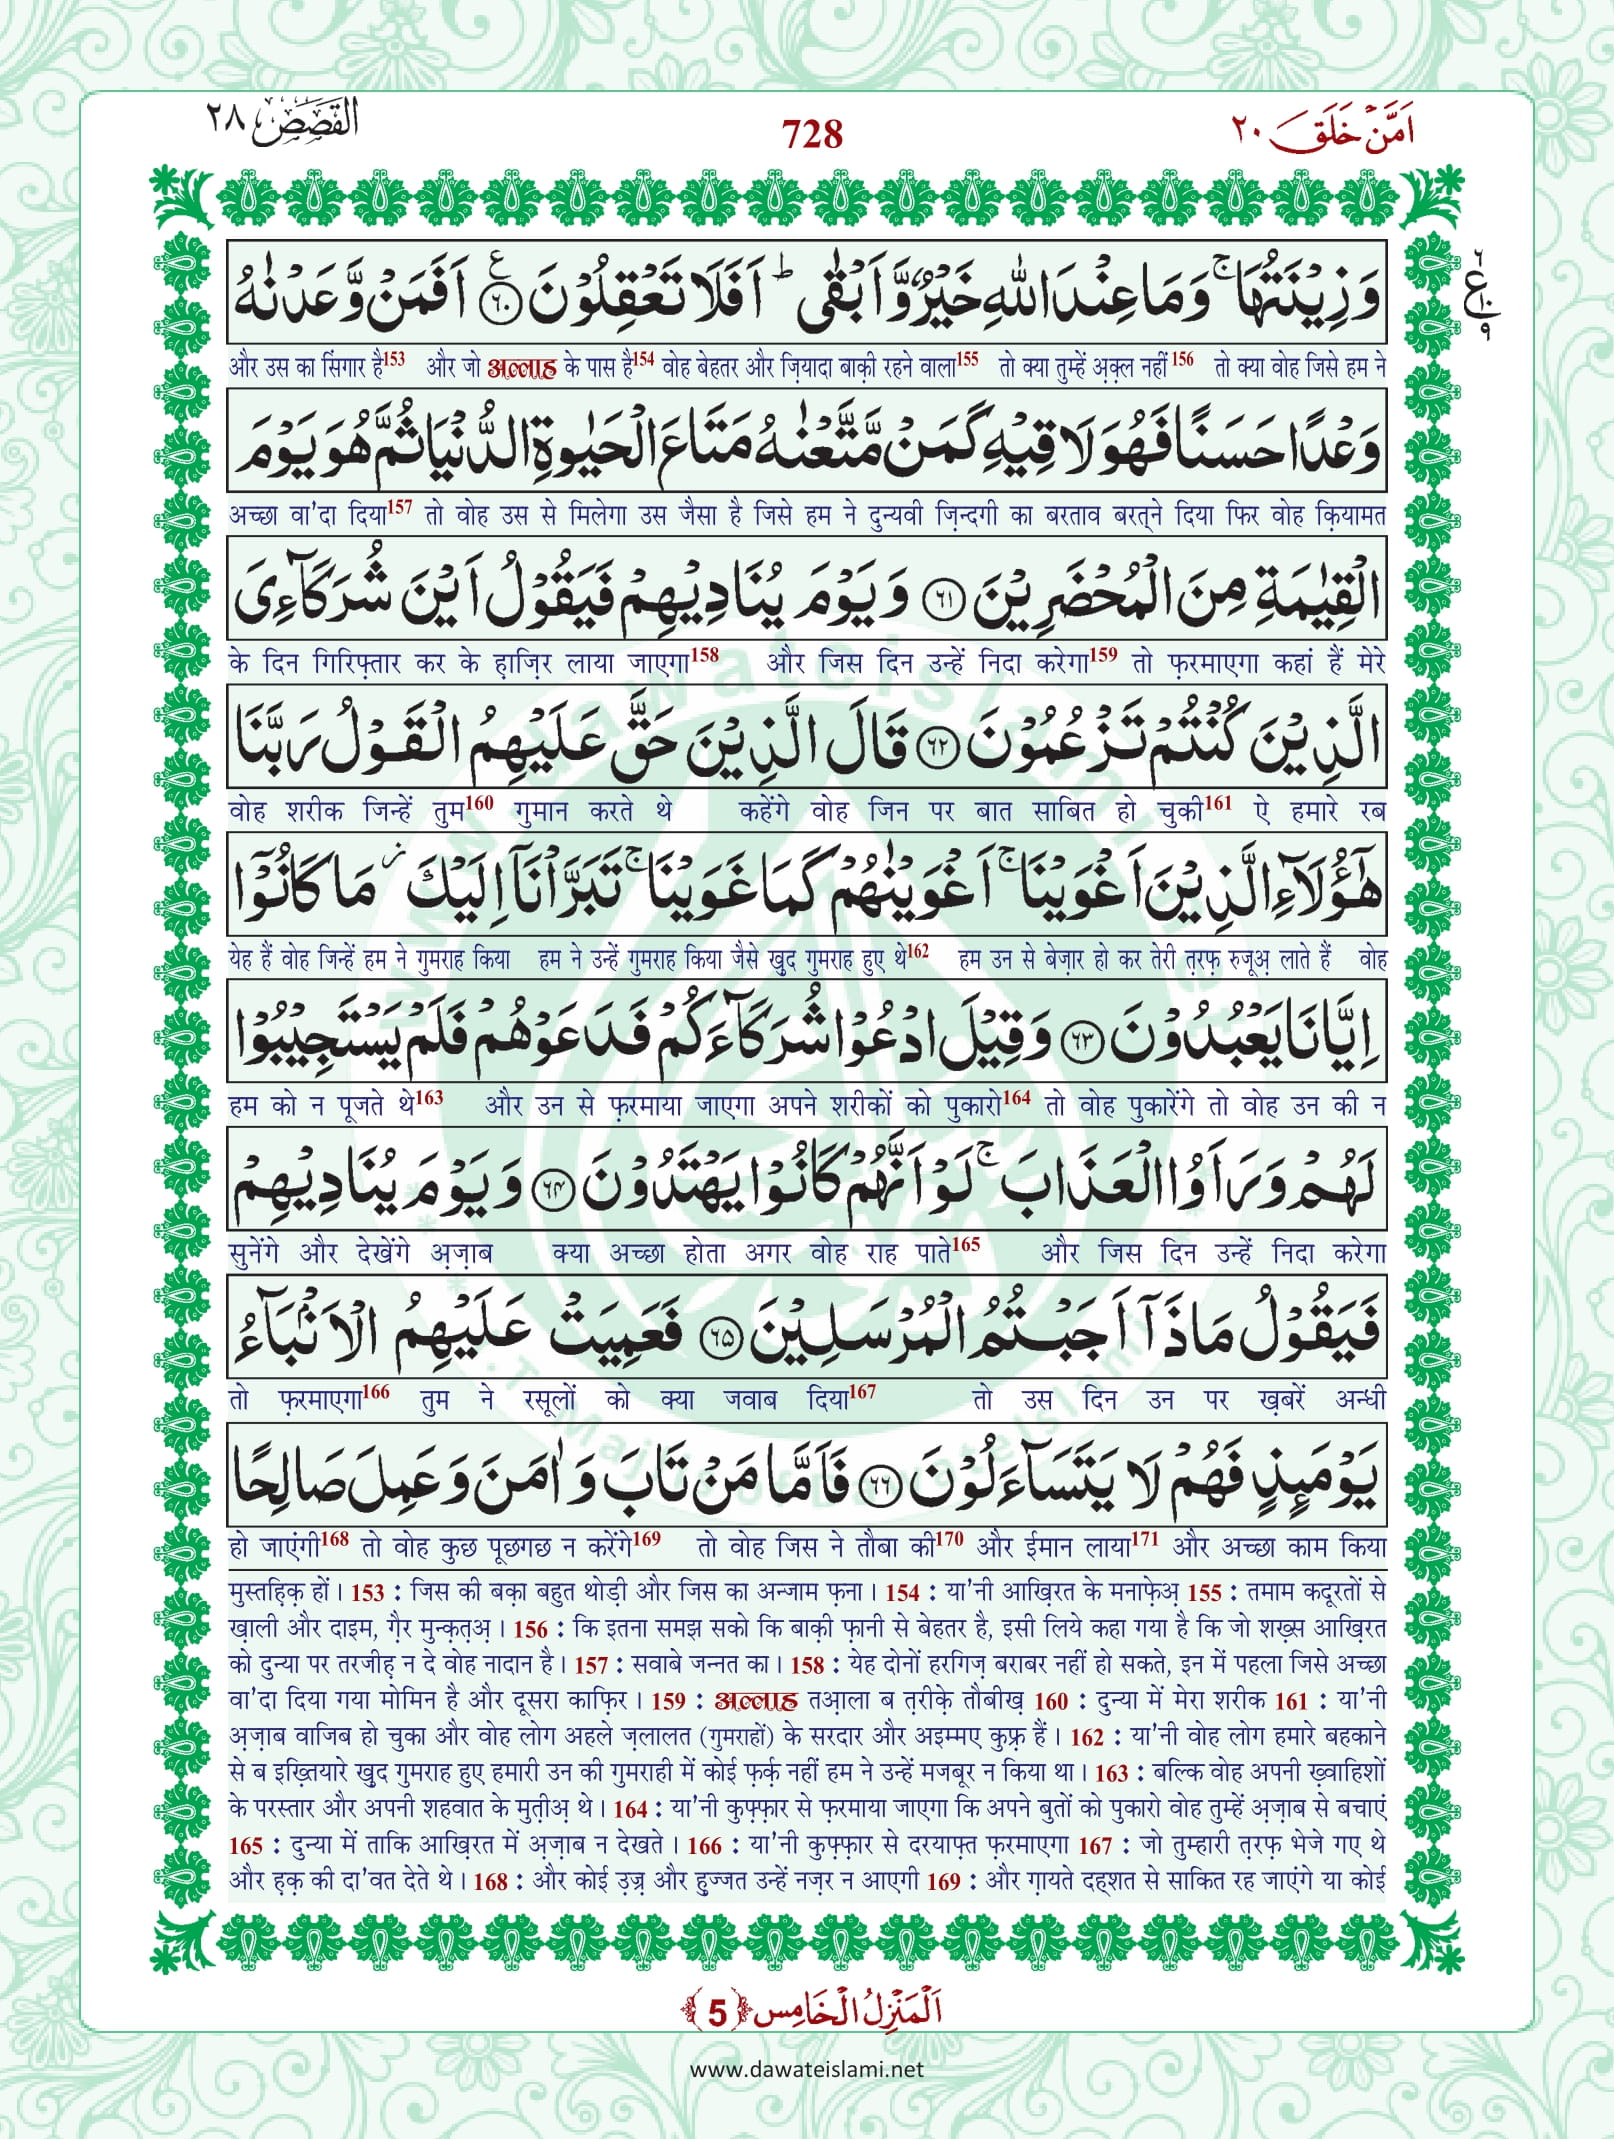 اَمَّنْ خَلَقَ ٢٠ 728 الْقَصَص ٢٨
وَ زِیْنَتُهَا ۚ وَ مَا عِنْدَ اللّٰهِ خَیْرٌ وَّ اَبْقٰى ؕ اَفَلَا تَعْقِلُوْنَ ﴿٦٠﴾ اَفَمَنْ وَّعَدْنٰهُ
और उस का सिंगार है153 और जो अल्लाह के पास है154 वोह बेहतर और ज़ियादा बाक़ी रहने वाला155 तो क्या तुम्हें अ़क़्ल नहीं156 तो क्या वोह जिसे हम ने
وَعْدًا حَسَنًا فَهُوَ لَاقِیْهِ كَمَنْ مَّتَّعْنٰهُ مَتَاعَ الْحَیٰوةِ الدُّنْیَا ثُمَّ هُوَ یَوْمَ
अच्छा वा'दा दिया157 तो वोह उस से मिलेगा उस जैसा है जिसे हम ने दुन्यवी ज़िन्दगी का बरताव बरत्ने दिया फिर वोह क़ियामत
الْقِیٰمَةِ مِنَ الْمُحْضَرِیْنَ ﴿٦١﴾ وَ یَوْمَ یُنَادِیْهِمْ فَیَقُوْلُ اَیْنَ شُرَكَآءِیَ
के दिन गिरिफ़्तार कर के ह़ाज़िर लाया जाएगा158 और जिस दिन उन्हें निदा करेगा159 तो फ़रमाएगा कहां हैं मेरे
الَّذِیْنَ كُنْتُمْ تَزْعُمُوْنَ ﴿٦٢﴾ قَالَ الَّذِیْنَ حَقَّ عَلَیْهِمُ الْقَوْلُ رَبَّنَا
वोह शरीक जिन्हें तुम160 गुमान करते थे कहेंगे वोह जिन पर बात साबित हो चुकी161 ऐ हमारे रब
هٰۤؤُلَآءِ الَّذِیْنَ اَغْوَیْنَا ۚ اَغْوَیْنٰهُمْ كَمَا غَوَیْنَا ۚ تَبَرَّاْنَاۤ اِلَیْكَ ؗ مَا كَانُوْۤا
येह हैं वोह जिन्हें हम ने गुमराह किया हम ने उन्हें गुमराह किया जैसे ख़ुद गुमराह हुए थे162 हम उन से बेज़ार हो कर तेरी त़रफ़ रुजूअ़ लाते हैं वोह
اِیَّانَا یَعْبُدُوْنَ ﴿٦٣﴾ وَ قِیْلَ ادْعُوْا شُرَكَآءَكُمْ فَدَعَوْهُمْ فَلَمْ یَسْتَجِیْبُوْا
हम को न पूजते थे163 और उन से फ़रमाया जाएगा अपने शरीकों को पुकारो164 तो वोह पुकारेंगे तो वोह उन की न
لَهُمْ وَ رَاَوُا الْعَذَابَ ۚ لَوْ اَنَّهُمْ كَانُوْا یَهْتَدُوْنَ ﴿٦٤﴾ وَ یَوْمَ یُنَادِیْهِمْ
सुनेंगे और देखेंगे अ़ज़ाब क्या अच्छा होता अगर वोह राह पाते165 और जिस दिन उन्हें निदा करेगा
فَیَقُوْلُ مَاذَاۤ اَجَبْتُمُ الْمُرْسَلِیْنَ ﴿٦٥﴾ فَعَمِیَتْ عَلَیْهِمُ الْاَنْۢبَآءُ
तो फ़रमाएगा166 तुम ने रसूलों को क्या जवाब दिया167 तो उस दिन उन पर ख़बरें अन्धी
یَوْمَىٕذٍ فَهُمْ لَا یَتَسَآءَلُوْنَ ﴿٦٦﴾ فَاَمَّا مَنْ تَابَ وَ اٰمَنَ وَ عَمِلَ صَالِحًا
हो जाएंगी168 तो वोह कुछ पूछगछ न करेंगे169 तो वोह जिस ने तौबा की170 और ईमान लाया171 और अच्छा काम किया
मुस्तह़िक़ हों। 153 : जिस की बक़ा बहुत थोड़ी और जिस का अन्जाम फ़ना। 154 : या'नी आख़िरत के मनाफ़ेअ़ 155 : तमाम कदूरतों से
ख़ाली और दाइम, ग़ैर मुन्क़त़अ़। 156 : कि इतना समझ सको कि बाक़ी फ़ानी से बेहतर है, इसी लिये कहा गया है कि जो शख़्स आख़िरत
को दुन्या पर तरजीह़ न दे वोह नादान है। 157 : सवाबे जन्नत का। 158 : येह दोनों हरगिज़ बराबर नहीं हो सकते, इन में पहला जिसे अच्छा
वा'दा दिया गया मोमिन है और दूसरा काफ़िर। 159 : अल्लाह तआ़ला ब त़रीक़े तौबीख़ 160 : दुन्या में मेरा शरीक 161 : या'नी
अ़ज़ाब वाजिब हो चुका और वोह लोग अहले ज़लालत (गुमराहों) के सरदार और अइम्मए कुफ़्र हैं। 162 : या'नी वोह लोग हमारे बहकाने
से ब इख़्तियारे ख़ुद गुमराह हुए हमारी उन की गुमराही में कोई फ़र्क़ नहीं हम ने उन्हें मजबूर न किया था। 163 : बल्कि वोह अपनी ख़्वाहिशों
के परस्तार और अपनी शहवात के मुत़ीअ़ थे। 164 : या'नी कुफ़्फ़ार से फ़रमाया जाएगा कि अपने बुतों को पुकारो वोह तुम्हें अ़ज़ाब से बचाएं
165 : दुन्या में ताकि आख़िरत में अ़ज़ाब न देखते। 166 : या'नी कुफ़्फ़ार से दरयाफ़्त फ़रमाएगा 167 : जो तुम्हारी त़रफ़ भेजे गए थे
और ह़क़ की दा'वत देते थे। 168 : और कोई उ़ज़्र और ह़ुज्जत उन्हें नज़र न आएगी 169 : और ग़ायते दह्शत से साकित रह जाएंगे या कोई
اَلْمَنْزِلُ الْخَامِس ﴿5﴾
www.dawateislami.net